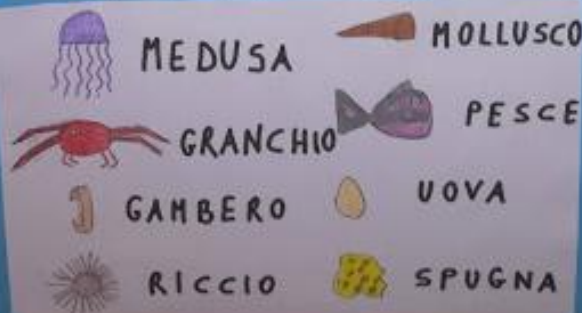 MEDUSA
GRANCHIO
GAMBERO
RICCIO
MOLLUSCO
PESCE
UOVA
SPUGNA